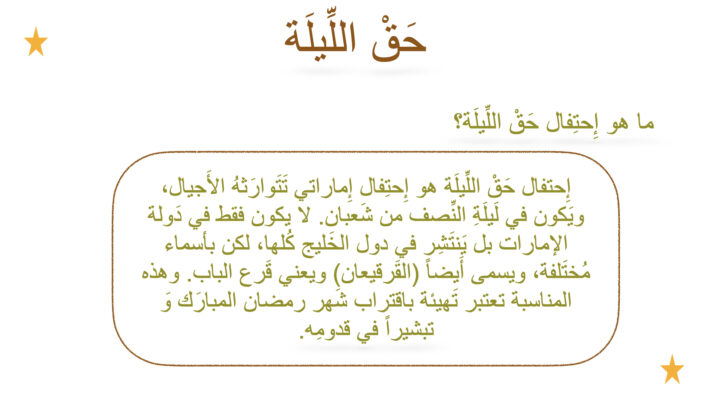 حَقْ اللِّيلَة
ما هو إِحتِفال حَقْ اللِّيلَة؟
إِحتفال حَقْ اللِّيلَة هو إِحتِفال إِماراتي تَتَوارَثهُ الأَجيال،
ويَكون في لَيلَةِ النِّصف من شَعبان. لا يكون فقط في دَولة
الإمارات بل يَنتَشِر في دول الخَليج كُلها، لكن بأسماء
مُختَلفة، ويسمى أَيضاً (القَرقيعان) ويعني قَرع الباب. وهذه
المناسبة تعتبر تَهيئة باقتراب شَهر رمضان المبارَك وَ
تبشيراً في قدومِه.